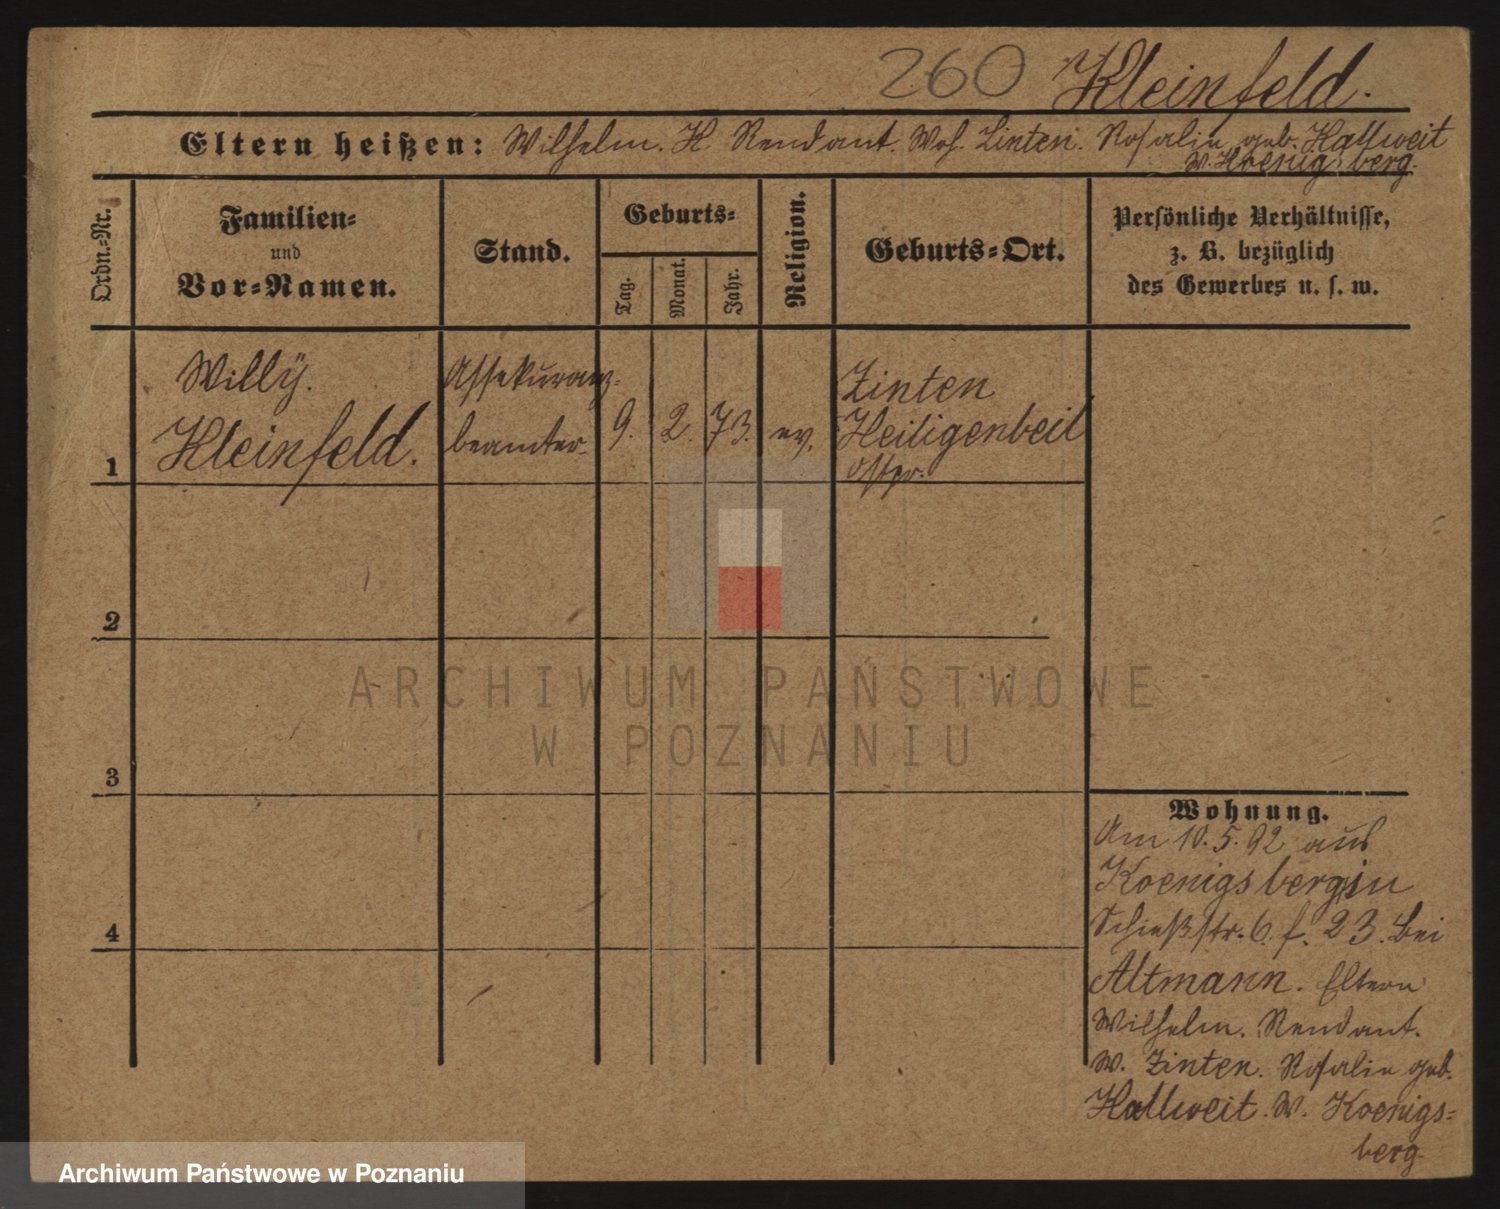 260 Kleinfeld.
Eltern heißen: Wilhelm. K. Rendant. Woh. Zinten. Rosalie geb. Hallweit
W. Koenigsberg.
Ordn.-Nr.
Familien-
und
Vor-Namen.
Stand.
Geburts-
Tag.
Monat.
Jahr.
Religion.
Geburts-Ort.
Persönliche Verhältnisse,
z. B. bezüglich
des Gewerbes u. s. w.
1
Willy.
Kleinfeld.
Assekuranz-
beamter.
9. 2. 73. ev.
Zinten
Heiligenbeil
Ostpr.
2
3
4
ARCHIWUM PAŃSTWOWE
W POZNANIU
Wohnung.
Am 10. 5. 92 aus
Koenigsberg in
Schießstr. 6. f. 23. bei
Altmann. Eltern
Wilhelm. Rendant.
W. Zinten. Rosalie geb.
Hallweit. W. Koenigs=
berg.
Archiwum Państwowe w Poznaniu